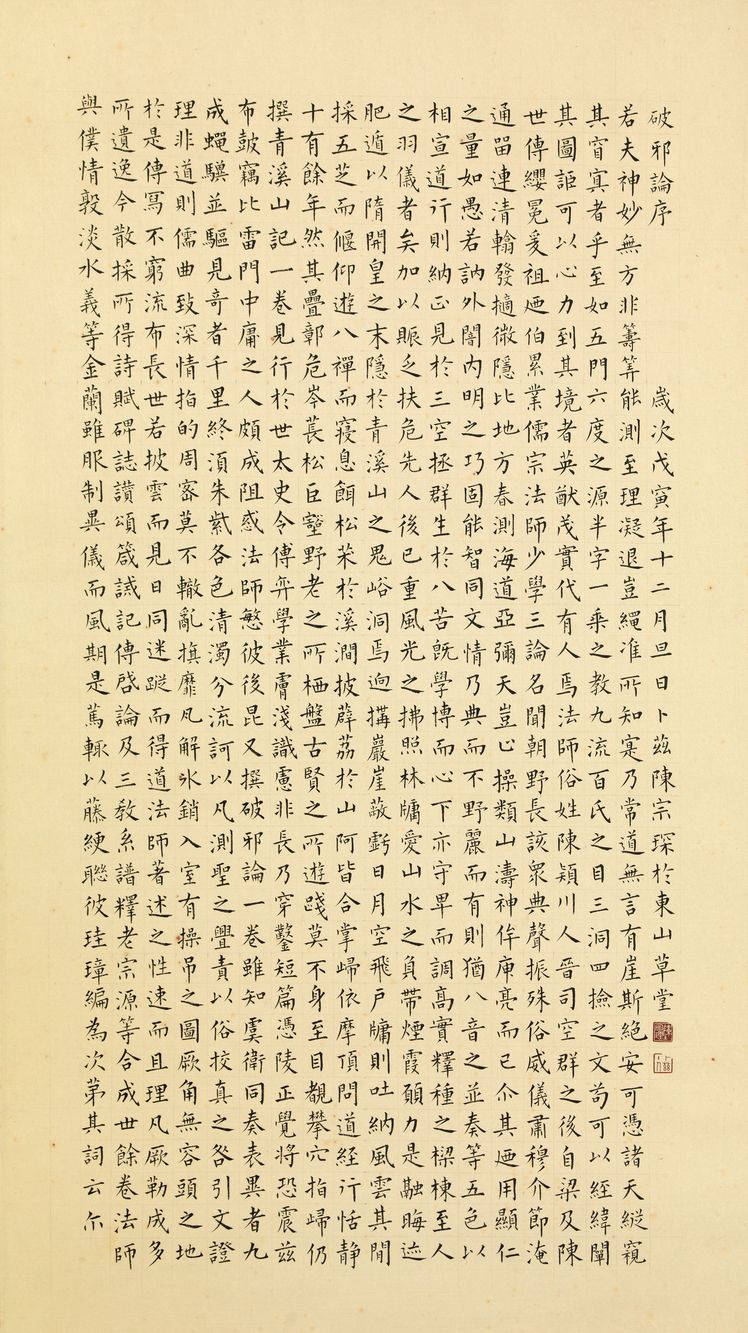 破邪論序　歲次戊寅年十二月旦日卜茲陳宗琛於東山草堂
若夫神妙無方非籌筭能測至理凝退豈繩准所知寔乃常道無言有崖斯絕安可憑諸天縱窺
其窅寘者乎至如五門六度之源半字一乘之教九流百氏之目三洞四撿之文苟可以經緯闡
其圖詎可以心力到其境者英猷茂實代有人焉法師俗姓陳潁川人晉司空群之後自梁及陳
世傳纓冕爰祖迺伯累業儒宗法師少學三論名聞朝野長該眾典聲振殊俗威儀肅穆介節淹
通留連清翰發擿微隱比地方春測海道亞彌天豈止操類山濤神侔庾亮而已尒其迺用顯仁
之量如愚若訥外闇內明之巧固能智同文情乃典而不野麗而有則猶八音之並奏等五色以
相宣道行則納正見於三空拯群生於八苦旣學博而心下亦守卑而調高實釋種之樑棟至人
之羽儀者矣加以賑乏扶危先人後已重風光之拂照林牖愛山水之負帶煙霞願力是融晦迹
肥遁以隋開皇之末隱於青溪山之鬼峪洞焉逈搆巖崖蔽虧日月空飛戶牖則吐納風雲其閒
採五芝而偃仰遊八禪而寢息餌松茱於溪澗披薜荔於山阿皆合掌歸依摩頂問道經行恬静
十有餘年然其疊鄣危岑萇松巨壑野老之所栖盤古賢之所遊踐莫不身至目覩攀穴指歸仍
撰青溪山記一卷見行於世太史令傅弈學業膚淺識慮非長乃穿鑿短篇憑陵正覺將恐震茲
布鼓竊比雷門中庸之人頗成阻惑法師慜彼後昆又撰破邪論一卷雖知虞衛同奏表異者九
成蠅驥並驅見奇者千里終湏朱紫各色清濁分流訶以凡測聖之舋責以俗挍真之咎引文證
理非道則儒曲致深情指的周密莫不轍亂旗靡凡解氷銷入室有操吊之圖厥角無容頭之地
於是傳寫不窮流布長世若披雲而見日同迷蹤而得道法師著述之性速而且理凡厥勒成多
所遺逸今散採所得詩賦碑誌讚頌箴誡記傳啓論及三教系譜釋老宗源等合成世餘卷法師
與僕情敦淡水義等金蘭雖服制異儀而風期是篤輙以藤綆聯彼珪璋編為次第其詞云尒